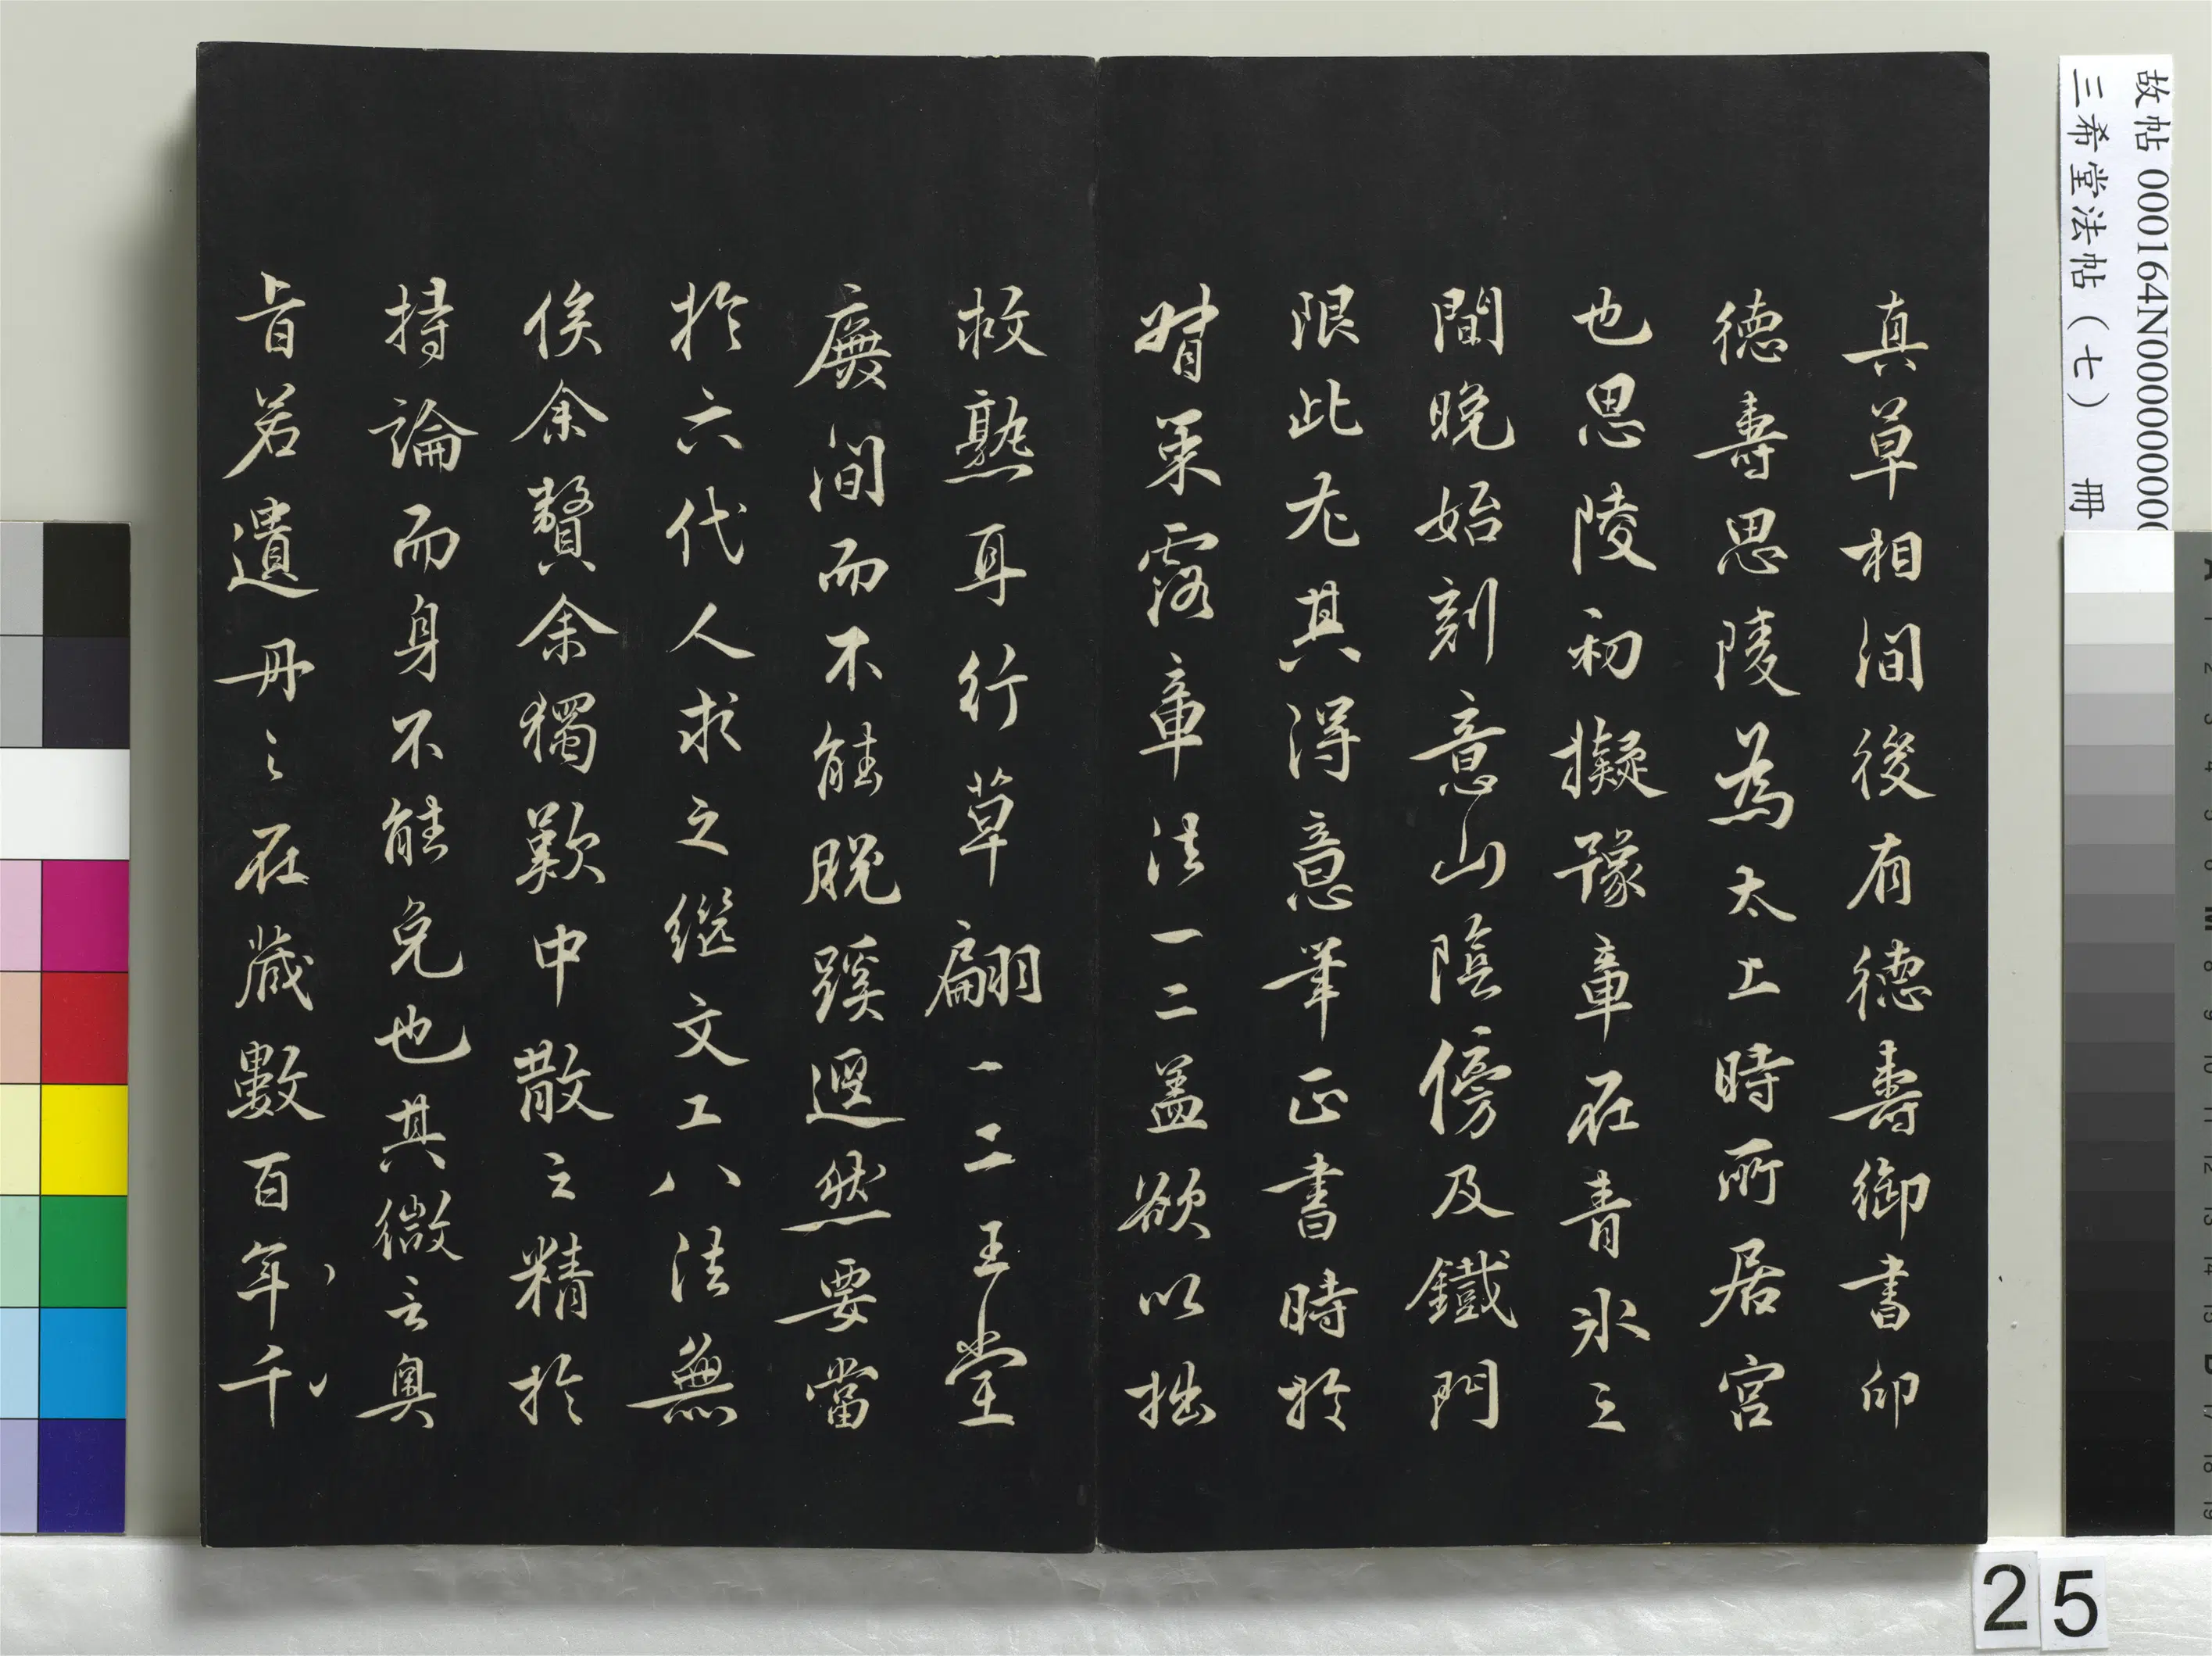 真草相間後有德壽御書印
德壽思陵為太上時所居宮
也思陵初擬豫章在青氷之
間晚始刻意山陰傍及鐵門
限此尤其得意筆正書時於
婿葉露章法一二盖欲以拙
救熟耳行草翩一二王堂
廡間而不能脫蹊逕然要當
於六代人求之繼文工八法無
俟余贅余獨歎中散之精於
持論而身不能免也其微言奧
旨若遺丹之在藏數百年千
故帖 000164N000000000
三希堂法帖（七） 冊
25